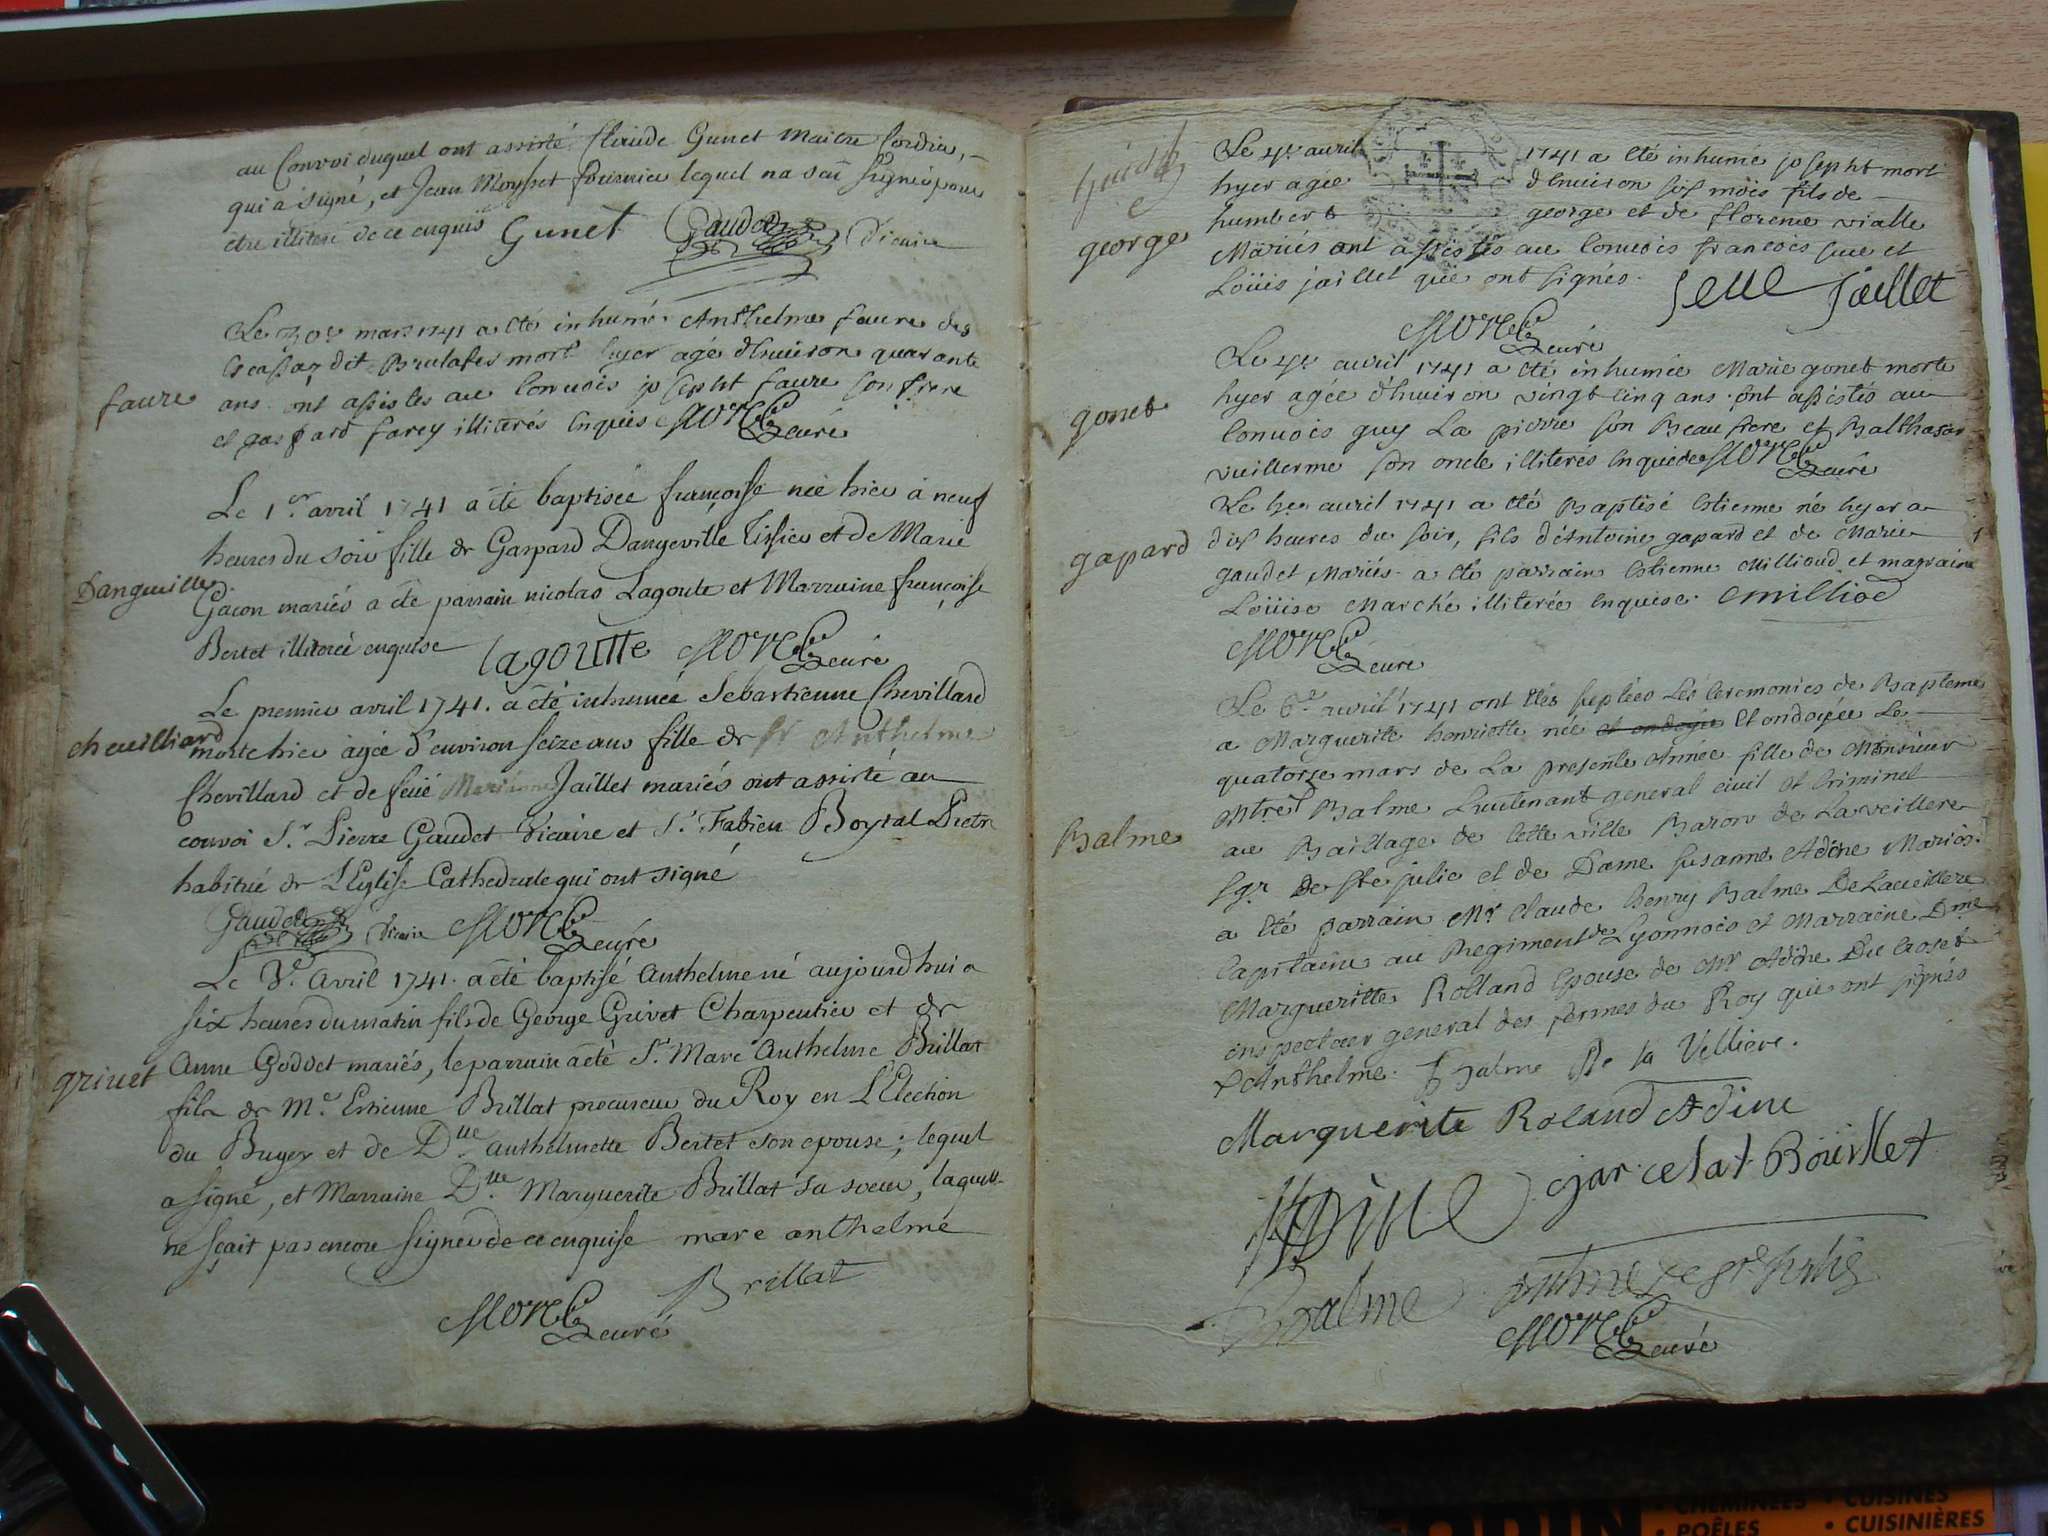 au Convoi duquel ont assisté Claude Gunet Maitre Cordier,
qui a signé, et Jean Moysset lequel na sçu signé pour
etre illiteré de ce enquis Gunet Gaudet Vicaire
Le 30e mars 1741 a été inhumé Anthelme faure des
dit mort hyer agé d'enuiron quarante
faure
ans ont assistés au conuois josepht faure son frere
et gaspard farcy illiterés enquis Morel curé
Le 1er avril 1741 a été baptisée françoise née hier à neuf
heures du soir fille de Gaspard Dangeville Tissier et de Marie
Dangeuille
Gacon mariés a été parrain nicolas Lagoute et Marraine françoise
Bertet illiterée enquise lagoutte Morel curé
Le premier avril 1741. a été inhumée Sebastienne Chevillard
cheuilliard
morte hier agée d'environ seize ans fille de Sr Anthelme
Chevillard et de feüe Marianne Jaillet mariés ont assisté au
convoi Sr. Pierre Gaudet Vicaire et Sr. Fabien Boysal Pretre
habitué de L'Eglise Cathedrale qui ont signé
Gaudet Vicaire Morel curé
Le Avril 1741. a été baptisé Anthelme né aujourdhui a
six heures du matin fils de George Grivet Charpentier et de
griuet
Anne Goddet mariés, le parrain a été Sr. Marc Anthelme Brillat
fils de Me. Estienne Brillat procureur du Roy en L'Election
du Bugey et de Dlle. Anthelmette Bertet son epouse; lequel
a signé, et Marraine Dlle. Marguerite Brillat sa soeur, laquelle
ne sçait pas encore signer de ce enquise marc anthelme
Brillat
Morel curé
Le 4e auril 1741 a eté inhumé josepht mort
hyer agée d'enuiron six mois fils de
humbert george et de florence vialle
george
Mariés ont assistés au conuois francois seue et
Loüis jaillet qui ont signés. seue Jaillet
Morel curé
Le 4e auril 1741 a été inhumée Marie gonet morte
hyer agée d'enuiron vingt cinq ans. ont assistés au
gonet
conuois guy La pierre son Beau frere et Balthasar
vuillerme son oncle illiteres enquis Morel curé
Le auril 1741 a eté Baptisé Estienne né hyer a
gapard
dix heures du soir, fils d'Antoine gapard et de Marie
gaudet Mariés. a eté parrain Estienne Milliaud et marraine
Loüise Marché illiterée enquise. emilliod
Morel curé
Le 6e auril 1741 ont étés suplées Les Ceremonies de Bapteme
a Marguerite henriette née et ondoyée Et ondoyée Le
quatorze mars de La presente Année fille de Monsieur
Balme Lieutenant general ciuil et Criminel
au Bailliage de Cette ville Baron de Laveillere
Balme
Sgr De Ste julie et de Dame Susanne Adine Mariés.
a été parrain Mr Claude henry Balme De Laueillere
Capitaine au Regiment de Lyonnois et Marraine Dme
Margueritte Rolland Epouse de Mr Adine Du Croset
inspecteur general des fermes du Roy qui ont signés
Anthelme. Balme De la Velliere.
Marguerite Roland Adine
Adine jarcelat Boüillet
Balme
Morel curé
CHEMINÉES • CUISINES
• POÊLES • CUISINIÈRES